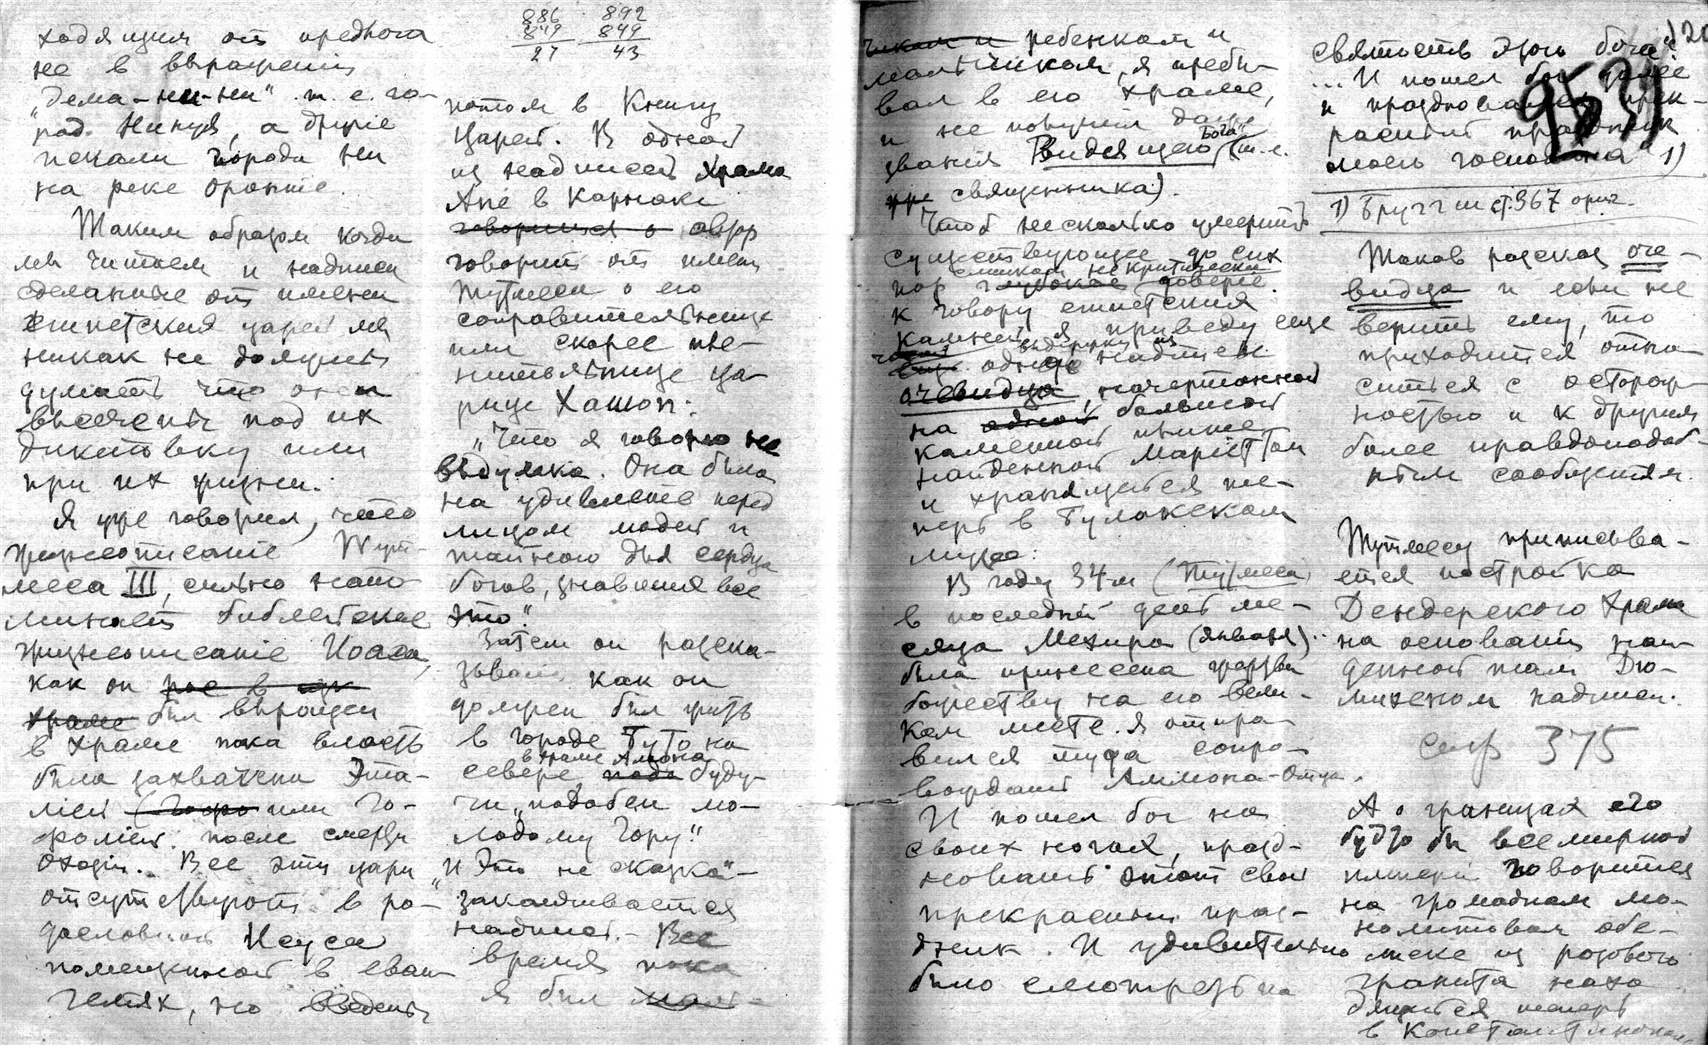 ходящим от предлога
не в выражении
„дема-ни-ни" т. е. го-
род Нинуя, а другие
искали города Ни
на реке Оронте.
Таким образом когда
мы читаем и надписи
сделанные от имени
египетских царей мы
никак не должны
думать что они
высечены под их
диктовку или
при их жизни.
Я уже говорил, что
жизнеописание Тут-
меса III, сильно напо-
минает библейское
жизнеописание Иоаса,
как он рос в
храме был вырощен
в храме пока власть
была захвачена Эта-
лией или Го-
фолией после смерти
Охозии. Все эти цари
отсутствуют в ро-
дословной Иисуса
помещенной в еван-
гелиях, но введены
886 892
849 849
27 43
потом в Книгу
Царей. В одной
из надписей храма
Апе в Карнаке
говорится о автор
говорит от имени
Тутмеса о его
соправительнице
или скорее пле-
нительнице ца-
рице Хашоп:
„Что я говорю не
выдумка. Она была
на удивление перед
лицом людей и
тайною для сердца
богов, знавших все
это".
Затем он расска-
зывает как он
должен был жить
в городе Буто на
в храме Амона
севере буду-
чи „подобен мо-
лодому Гору".
„И это не сказка"-
заканчивается
надпись. - Все
время пока
я был
и ребенком и
мальчиком, я пребы-
вал в его храме,
и не получил даже
звания Видящего Бога" (т.е.
священника).
Чтоб несколько умерить
существующее до сих
слишком некритически
пор глубокое доверие
к говору египетских
камней я приведу еще
выдержку из
одной надписи
очевидца, начертанной
на одной большой
каменной плите
найденной Мариеттом
и хранящейся те-
перь в Булакском
музее:
В году 34м (Тутмеса)
в последний день ме-
сяца Мехира (января)..
была принесена жертва
божеству на его вели-
ком месте. Я отпра-
вился туда сопро-
вождать Аммона-отца.
И пошел бог на
своих ногах, празд-
новать этот свой
прекрасный праз-
дник. И удивительно
было смотреть на
120
святость этого бога"
...И пошел бог далее
и праздновался прек-
расный праздник
моего господина" 1)
1) Бругш ст. 367 ориг.
Таков рассказ оче-
видца и если не
верить ему, то
приходится отно-
ситься с осторож-
ностью и к другим
более правдоподоб-
ным сообщениям.
Тутмесу приписыва-
ется постройка
Дендерского храма
на основании най-
денной там Дю-
михеном надписи.
стр 375
А о границах его
будто бы всемирной
империи говорится
на громадном мо-
нолитном обе-
лиске из розового
гранита нахо-
дящемся теперь
в Константинополе